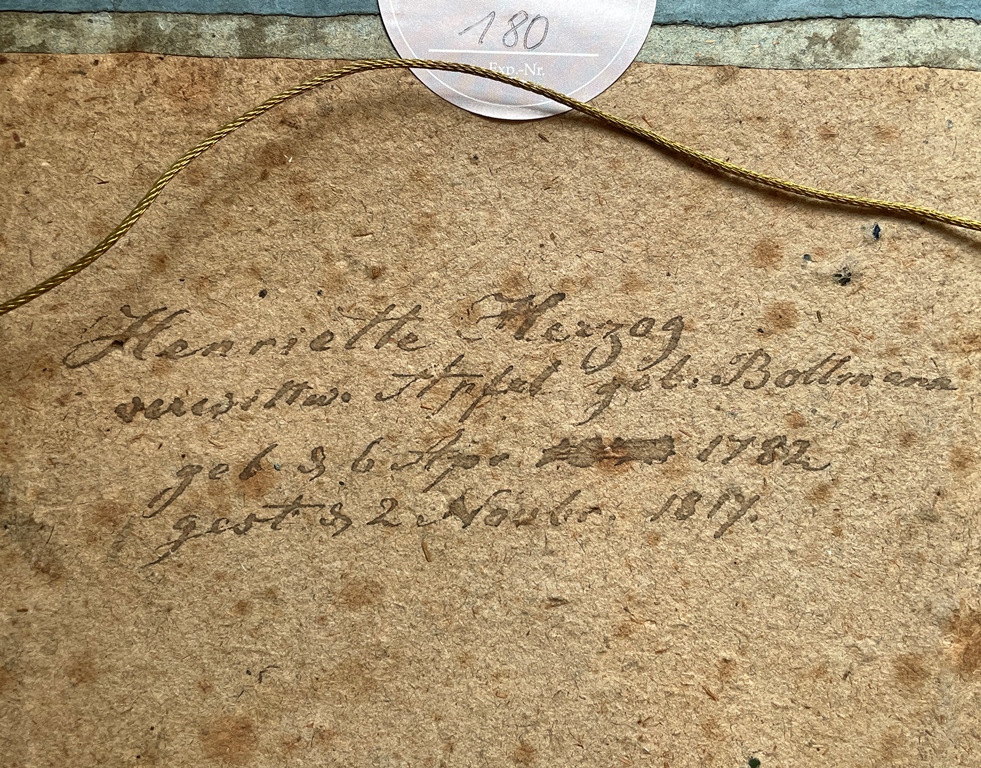 180
Exp.-Nr.
Henriette Herzog
verwittw. Apfel geb. Bollmann
geb. d 6 Apr. 1782
gest d 2 Novbr. 1817.